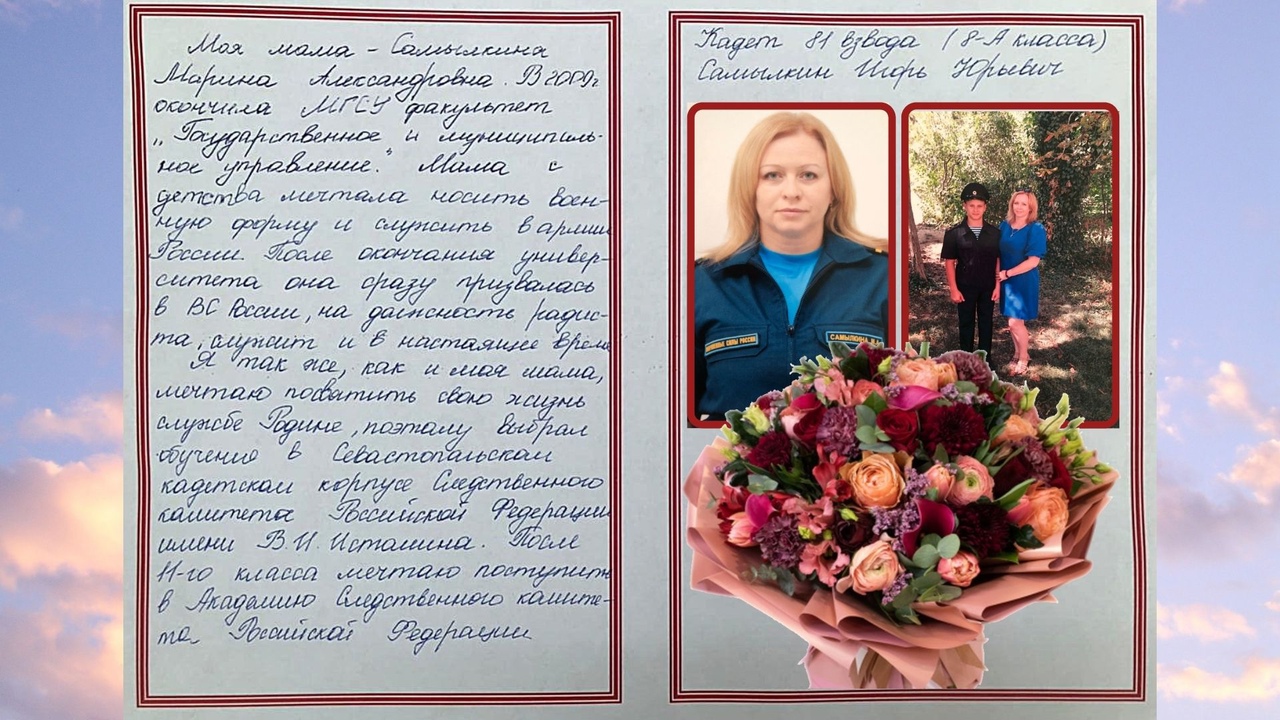 Моя мама – Самылкина
Марина Александровна. В 2009г
окончила МГСУ факультет
„Государственное и муниципаль-
ное управление.“ Мама с
детства мечтала носить воен-
ную форму и служить в армии
России. После окончания универ-
ситета она сразу призвалась
в ВС России, на должность радис-
та, служит и в настоящее время
Я так же, как и моя мама,
мечтаю посвятить свою жизнь
службе Родине, поэтому выбрал
обучение в Севастопольском
кадетском корпусе Следственного
комитета Российской Федерации
имени В.И. Истомина. После
11-го класса мечтаю поступить
в Академию Следственного комите-
та Российской Федерации
Кадет 81 взвода (8-А класса)
Самылкин Игорь Юрьевич
СИЛЫ РОССИИ
САМЫЛКИНА